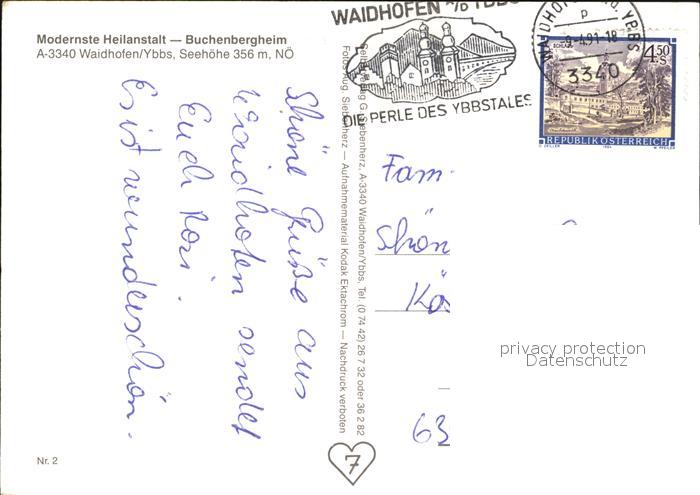 Modernste Heilanstalt — Buchenbergheim
A-3340 Waidhofen/Ybbs, Seehöhe 356 m, NÖ
WAIDHOFEN A/D YBBS
DIE PERLE DES YBBSTALES
WAIDHOFEN A.D. YBBS
P
-9.-4.91-18
3340
4.50
S
REPUBLIK ÖSTERREICH
Schöne Grüße aus
Waidhofen sendet
Euch Rosi.
Es ist wunderschön.
A-3340 Waidhofen/Ybbs, Tel. (0 74 42) 26 7 32 oder 36 2 82
Aufnahmematerial Kodak Ektachrom — Nachdruck verboten
Fam.
Schön
Kö
63
privacy protection
Datenschutz
7
Nr. 2